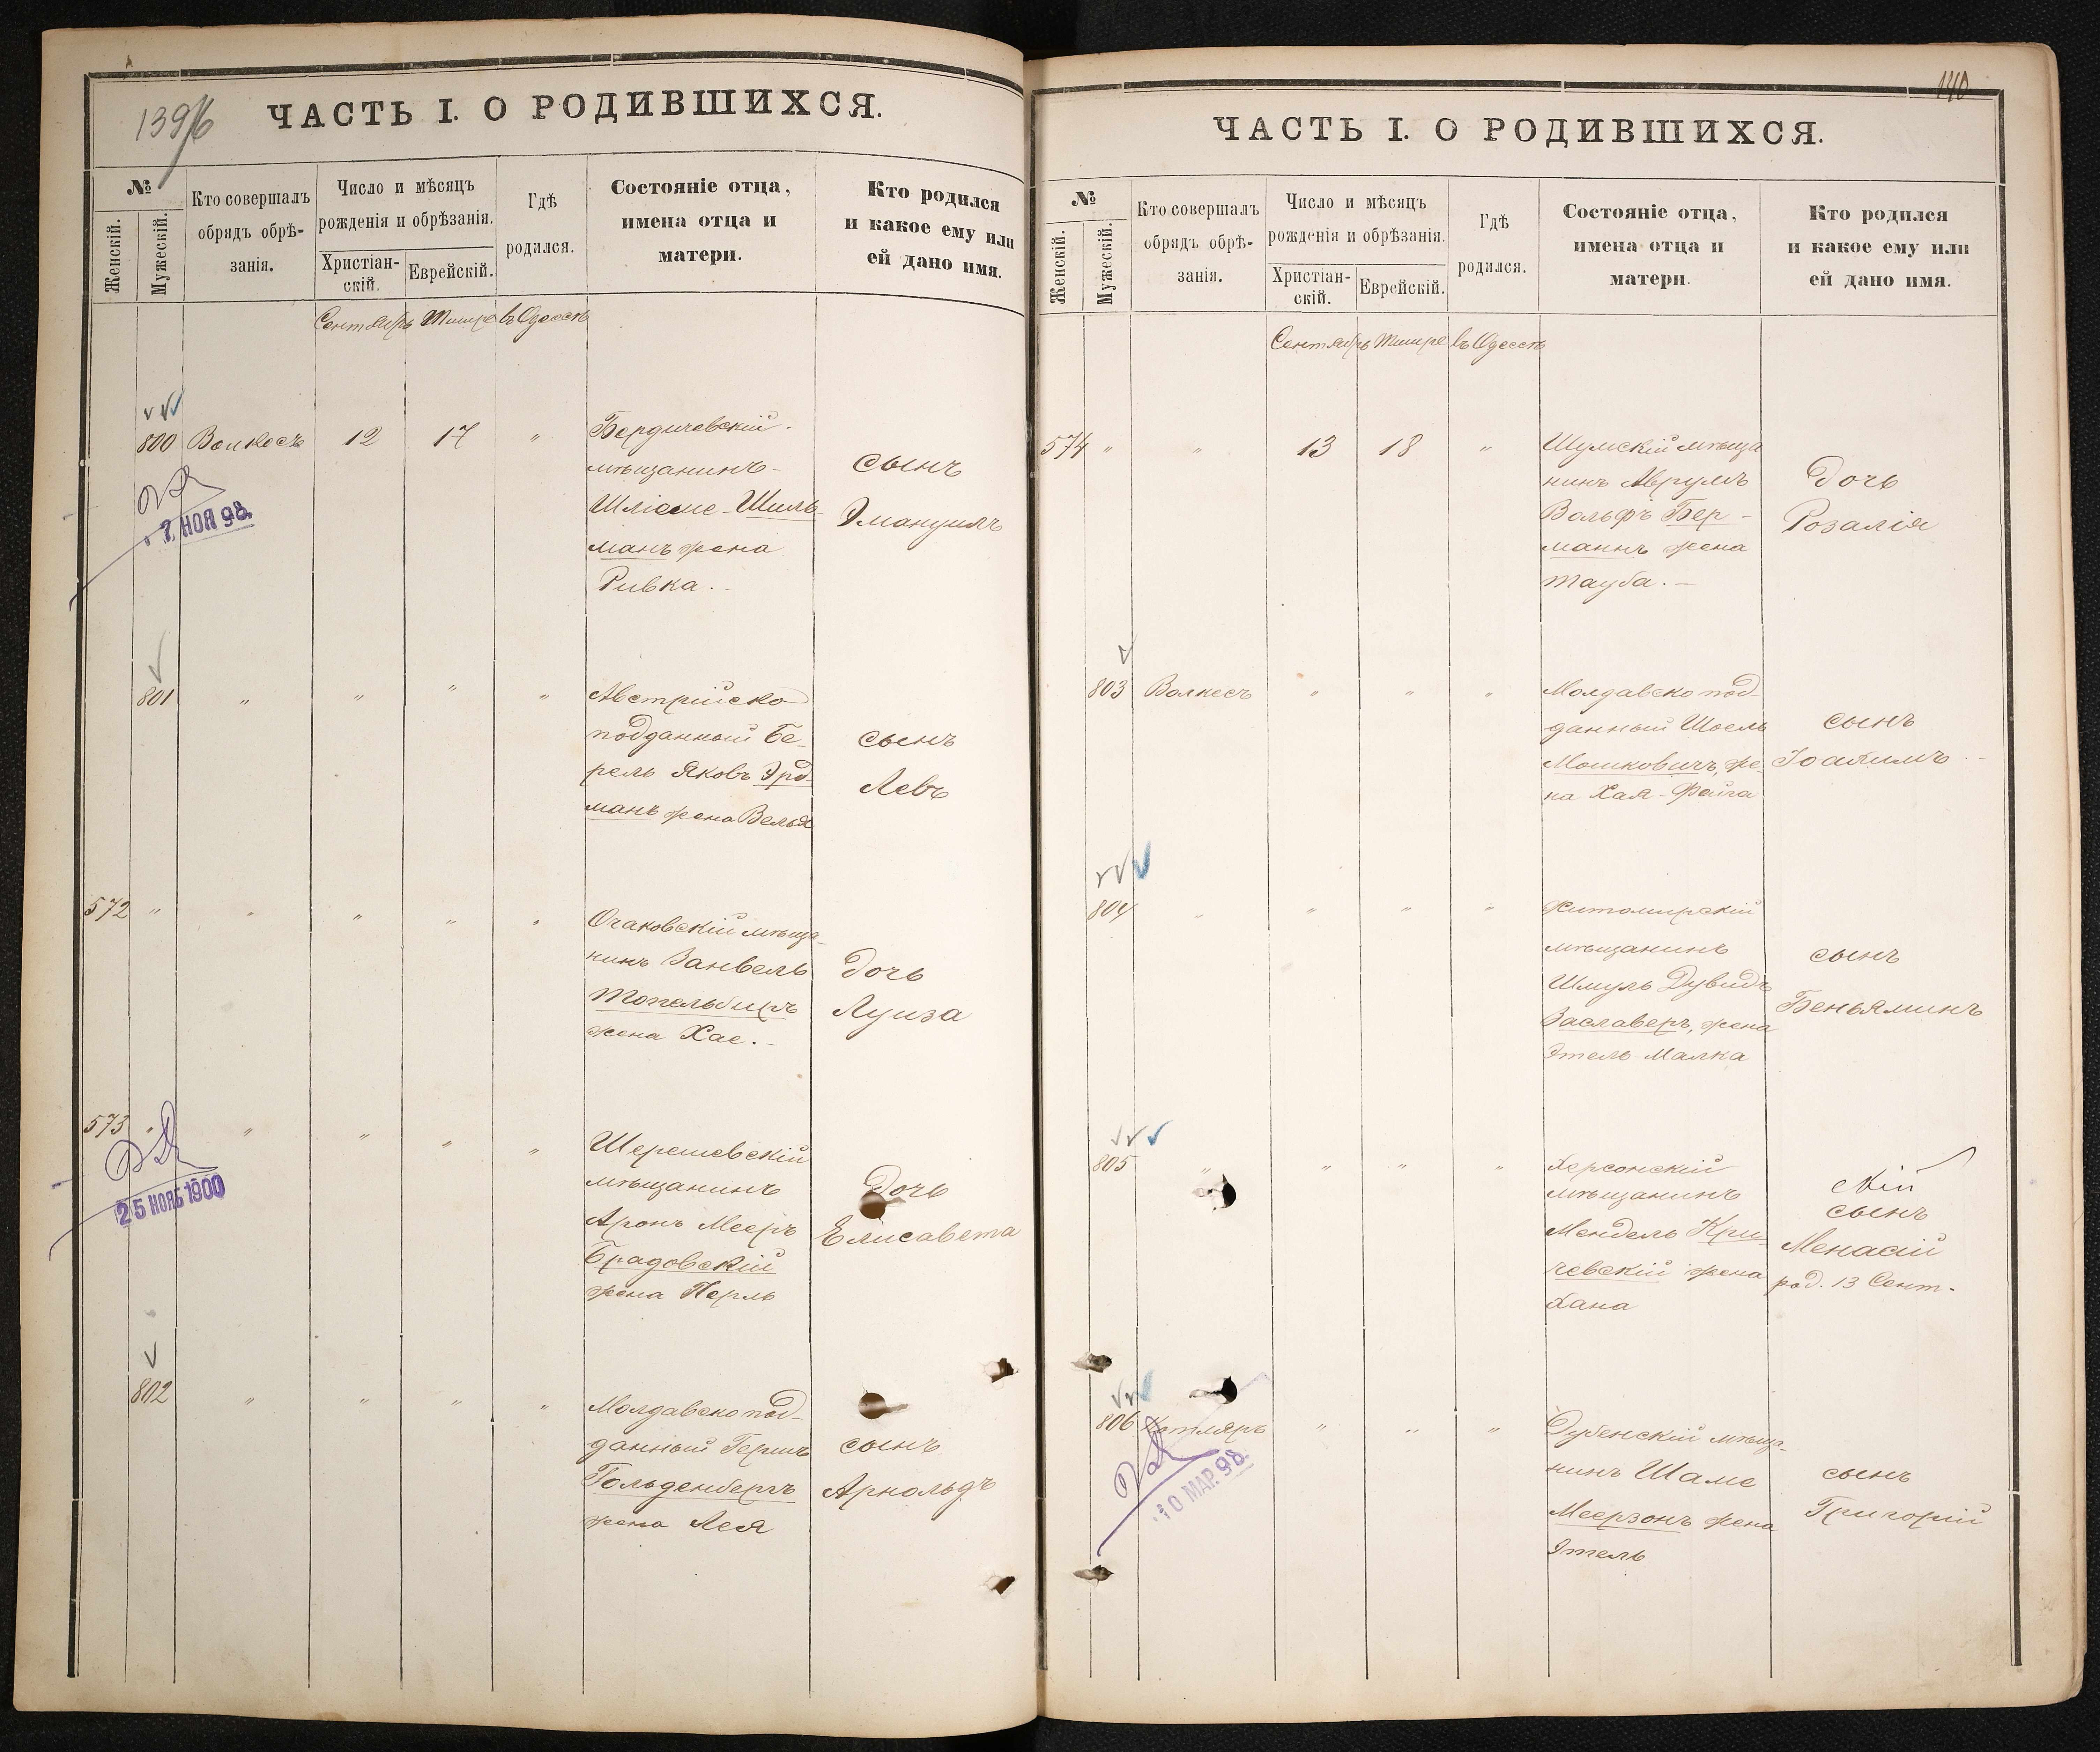 139/б
ЧАСТЬ I. О РОДИВШИХСЯ.
№
Женскій.
Мужескій.
Кто совершалъ
обрядъ обрѣ-
занія.
Число и мѣсяцъ
рожденія и обрѣзанія.
Христіан-
скій.
Еврейскій.
Гдѣ
родился.
Состояніе отца,
имена отца и
матери.
Кто родился
и какое ему или
ей дано имя.
Сентябрь Тишре въ Одессѣ
800 Волкесъ 12 17 " Бердичевскій
мѣщанинъ
Шліоме Шиль-
манъ жена
Ривка.
сынъ
Эмануилъ
7 НОЯ 98.
801 " " " " Австрійско
подданный Бе-
рель Яковъ Эрд-
манъ жена
сынъ
Левъ
572 " " " " " Очаковскій мѣща-
нинъ Занвель
Топельбергъ
жена Хае.
дочь
Луиза
573 " " " " " Шерешевскій
мѣщанинъ
Аронъ Мееръ
Брадовскій
жена Перль
дочь
Елисавета
25 НОЯБ 1900
802 " " " " Молдавско под-
данный Гершъ
Гольденбергъ
жена Лея
сынъ
Арнольдъ
140
ЧАСТЬ I. О РОДИВШИХСЯ.
№
Женскій.
Мужескій.
Кто совершалъ
обрядъ обрѣ-
занія.
Число и мѣсяцъ
рожденія и обрѣзанія.
Христіан-
скій.
Еврейскій.
Гдѣ
родился.
Состояніе отца,
имена отца и
матери.
Кто родился
и какое ему или
ей дано имя.
Сентябрь Тишре въ Одессѣ
574 " " 13 18 " Шумскій мѣща
нинъ Аврумъ
Вольфъ Бер-
манъ жена
Тауба.
дочь
Розалія
803 Волкесъ " " " Молдавско под-
данный Шоель
Мошковичъ, же-
на Хая-Фейга
сынъ
Іоахимъ
804 " " " " Житомирскій
мѣщанинъ
Шмуль Дувидъ
Заславеръ, жена
Этель Малка
сынъ
Беньяминъ
805 " " " " Херсонскій
мѣщанинъ
Мендель Кри-
чевскій жена
Хана
сынъ
Менасій
род. 13 Сент.
806 Котляръ " " " Дубенскій мѣща-
нинъ Шаме
Меерзонъ жена
Этель
сынъ
Григорій
10 МАР. 98.